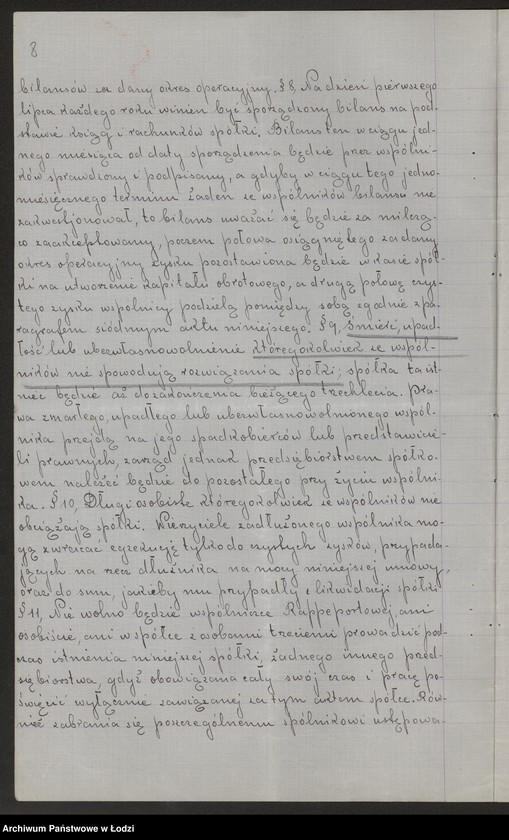 8
bilansów za dany okres operacyjny. § 8, Na dzień pierwszego
lipca każdego roku winien być sporządzony bilans na pod-
stawie ksiąg i rachunków spółki. Bilans ten w ciągu jed-
nego miesiąca od daty sporządzenia będzie przez wspólni-
ków sprawdzony i podpisany, a gdyby w ciągu tego jedno-
miesięcznego terminu żaden ze wspólników bilansu nie
zakwestjonował, to bilans uważać się będzie za milczą-
co zaakceptowany, poczem połowa osiągniętego za dany
okres operacyjny zysku pozostawiona będzie w kasie spół-
ki na utworzenie kapitału obrotowego, a drugą połowę czys-
tego zysku wspólnicy podzielą pomiędzy sobą zgodnie z pa-
ragrafem siódmym aktu niniejszego. § 9, Śmierć, upad-
łość lub ubezwłasnowolnienie któregokolwiek ze wspól-
ników nie spowodują rozwiązania spółki; spółka ta ist-
nieć będzie aż do zakończenia bieżącego trzechlecia. Pra-
wa zmarłego, upadłego lub ubezwłasnowolnionego wspól-
nika przejdą na jego spadkobierców lub przedstawicie-
li prawnych, zarząd jednak przedsiębiorstwem spółko-
wem należeć będzie do pozostałego przy życiu wspólni-
ka. § 10, Długi osobiste któregokolwiek ze wspólników nie
obciążają spółki. Wierzyciele zadłużonego wspólnika mo-
gą zwracać egzekucję tylko do czystych zysków, przypada-
jących na rzecz dłużnika na mocy niniejszej umowy,
oraz do sum, jakieby mu przypadły z likwidacji spółki
§ 11, Nie wolno będzie wspólniczce Rappeportowej, ani
osobiście, ani w spółce z osobami trzeciemi prowadzić pod-
czas istnienia niniejszej spółki, żadnego innego przed-
siębiorstwa, gdyż obowiązana cały swój czas i pracę po-
święcić wyłącznie zawiązanej za tym aktem spółce. Rów-
nież zabrania się poszczególnemu spólnikowi ustępowa-
Archiwum Państwowe w Łodzi